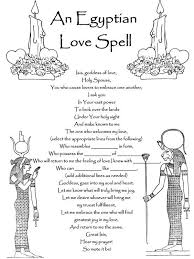 An Egyptian
Love Spell
Isis, goddess of love,
Holy Spouse,
You who cause lovers to embrace one another,
I ask you
In Your vast power
To look over the lands
Under Your holy sight
And make known to me
The one who welcomes my love,
(select the appropriate lines from the following)
Who resembles ______ in form,
Who possesses
Who will return to me the feeling of love I knew with
Who can ______ like ______,
(add additional lines as needed)
Goddess, gaze into my soul and heart;
Let me know what truly lies within.
Let my yearnings be satisfied;
Let me embrace the one who will find
greatest joy in my arms,
And let me do the same in return.
Great Isis,
Hear my prayer!
So mote it be!